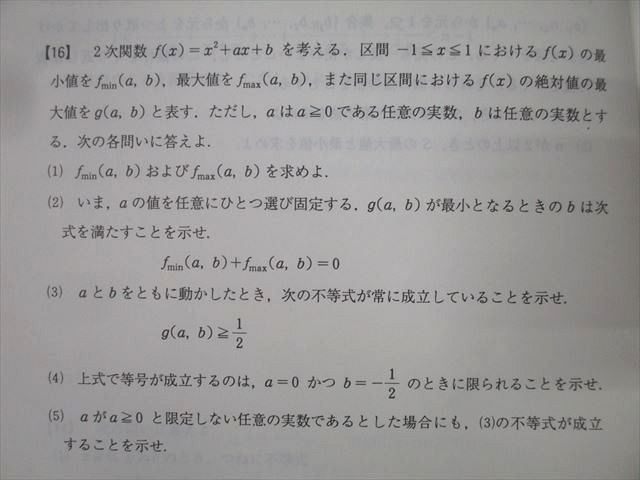 【16】 2次関数 f(x)=x²+ax+b を考える．区間 −1≦x≦1 における f(x) の最
小値を fmin(a, b)，最大値を fmax(a, b)，また同じ区間における f(x) の絶対値の最
大値を g(a, b) と表す．ただし，a は a≧0 である任意の実数，b は任意の実数とす
る．次の各問いに答えよ．
(1) fmin(a, b) および fmax(a, b) を求めよ．
(2) いま，a の値を任意にひとつ選び固定する．g(a, b) が最小となるときの b は次
式を満たすことを示せ．
fmin(a, b)+fmax(a, b)=0
(3) a と b をともに動かしたとき，次の不等式が常に成立していることを示せ．
g(a, b)≧1/2
(4) 上式で等号が成立するのは，a=0 かつ b=−1/2 のときに限られることを示せ．
(5) a が a≧0 と限定しない任意の実数であるとした場合にも，(3)の不等式が成立
することを示せ．